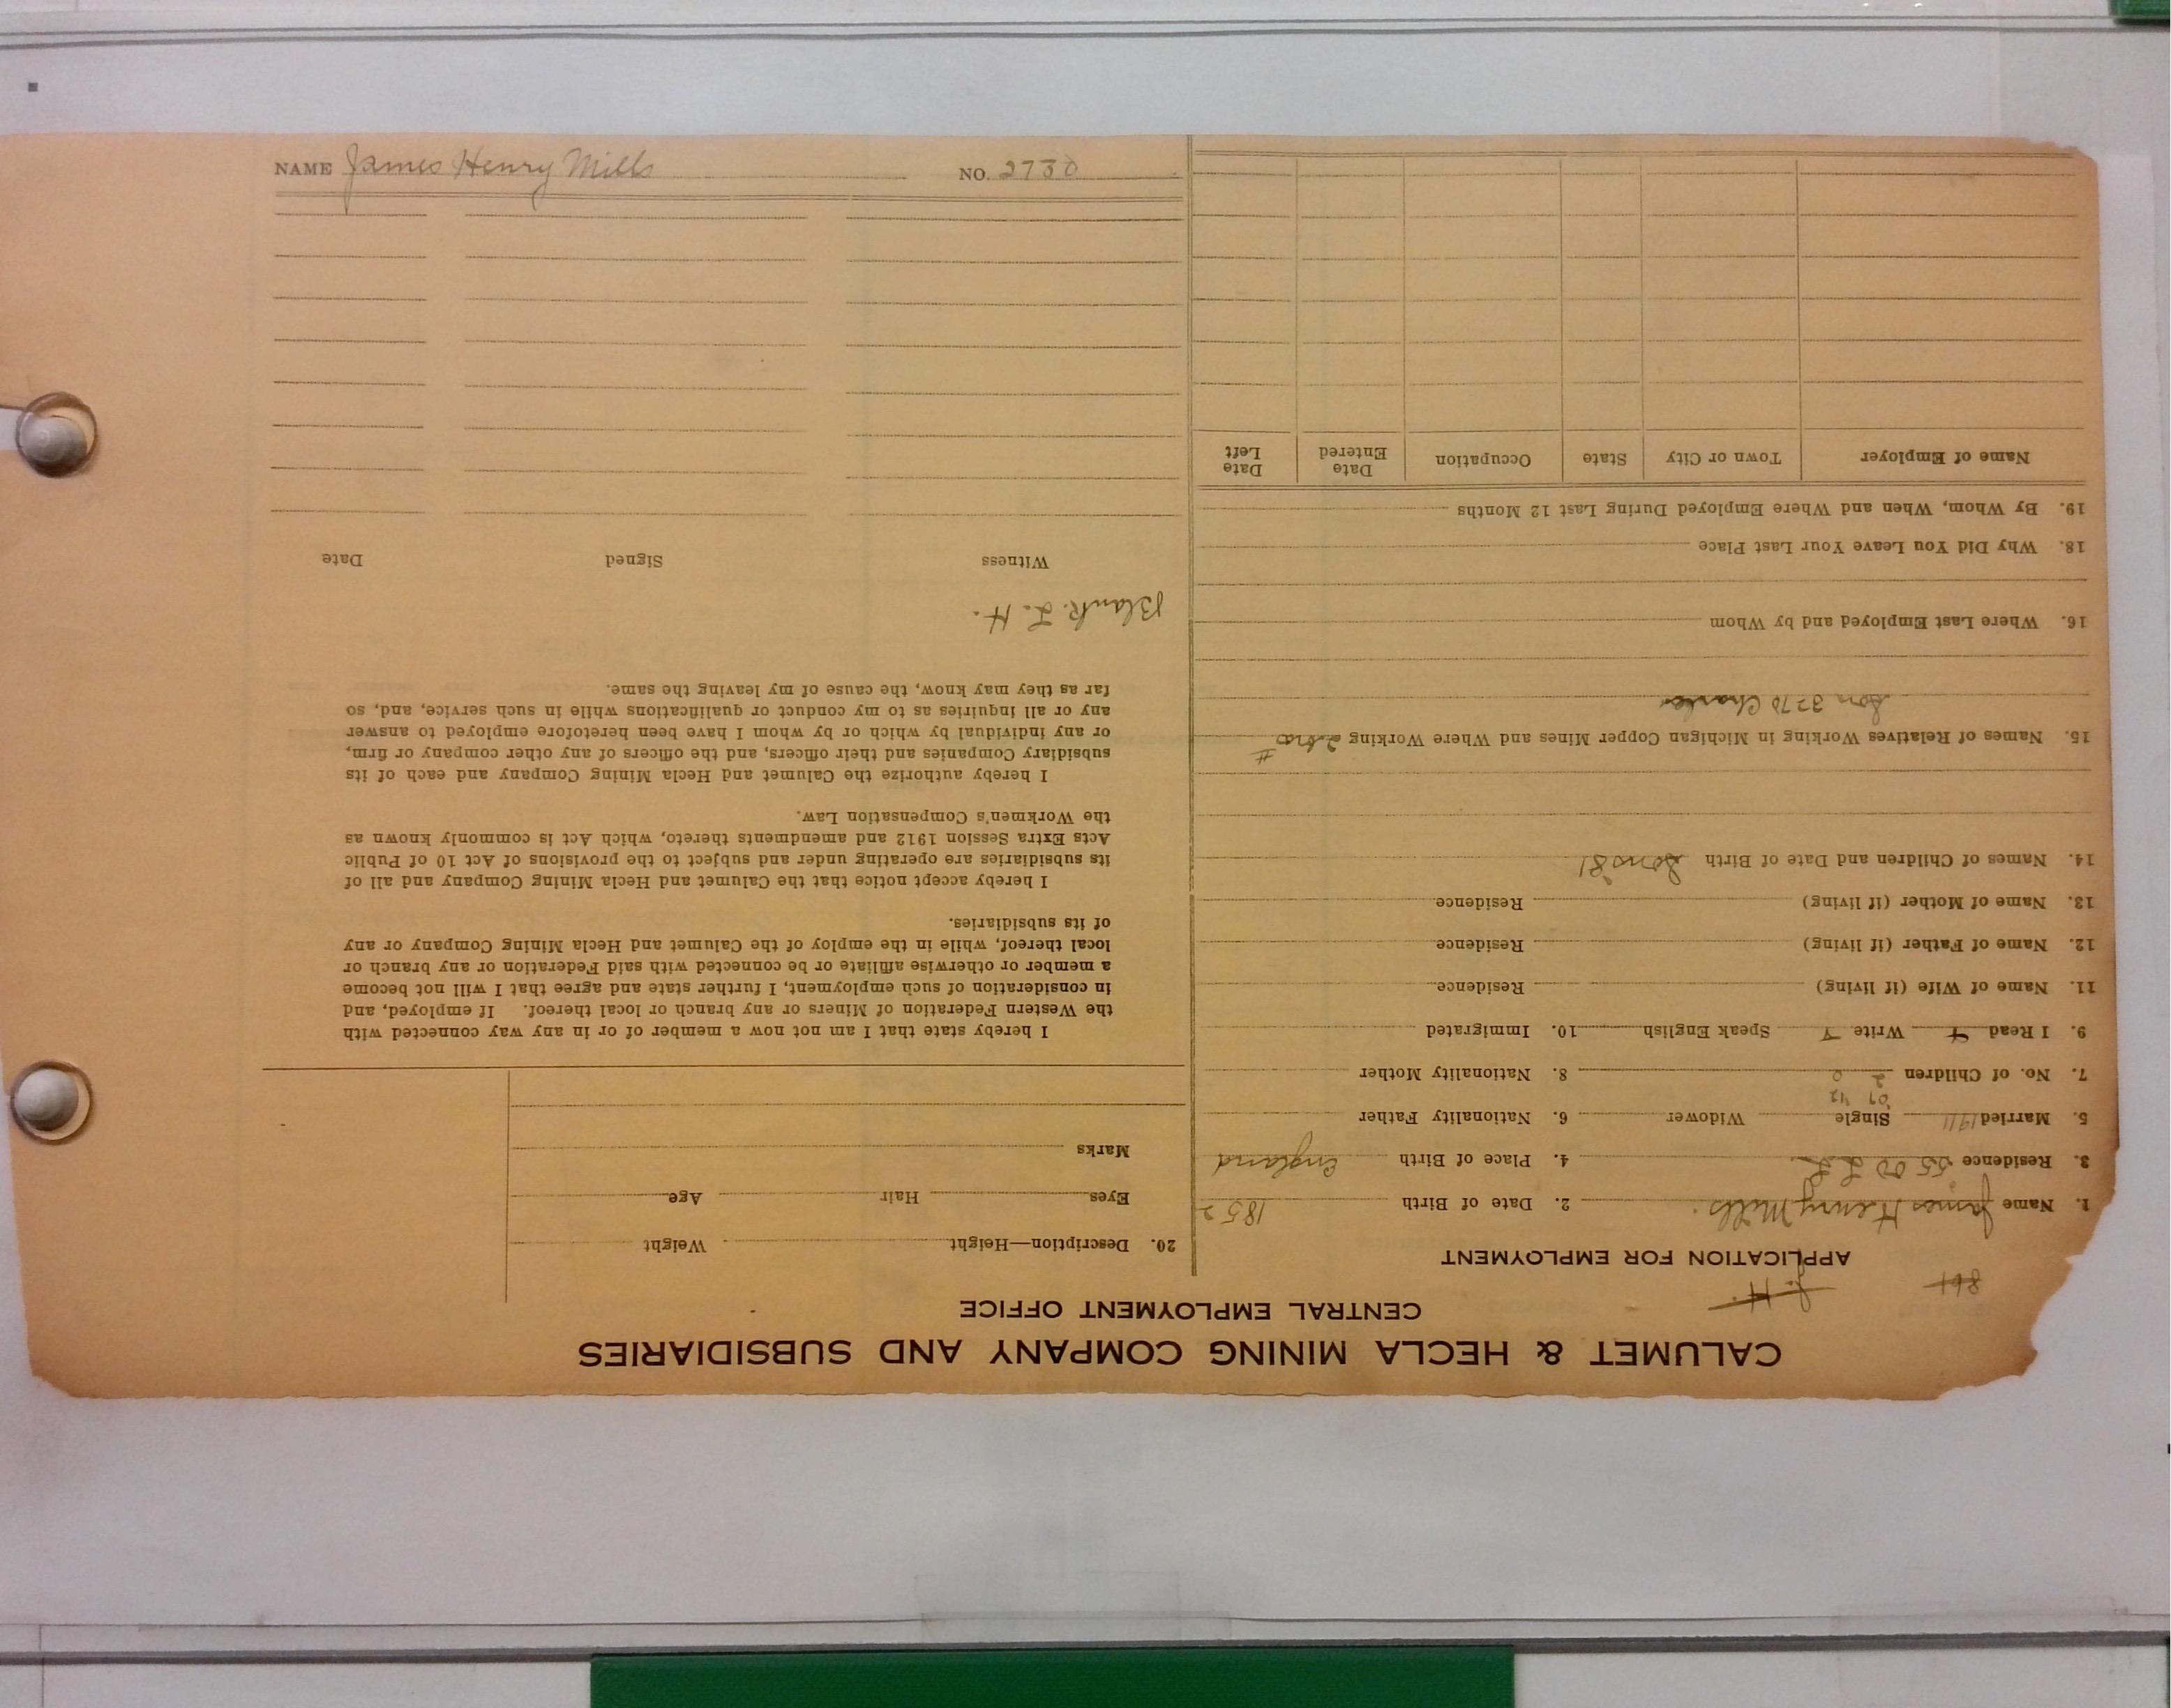 CALUMET & HECLA MINING COMPANY AND SUBSIDIARIES
CENTRAL EMPLOYMENT OFFICE
APPLICATION FOR EMPLOYMENT
1. Name James Henry Mills. 2. Date of Birth 1852
3. Residence 5500 L. L. 4. Place of Birth England
5. Married 1911 Single Widower 6. Nationality Father
'07 '12
7. No. of Children 2 0 8. Nationality Mother
9. I Read Y Write Y Speak English 10. Immigrated
11. Name of Wife (if living) Residence
12. Name of Father (if living) Residence
13. Name of Mother (if living) Residence
14. Names of Children and Date of Birth Son '81
15. Names of Relatives Working in Michigan Copper Mines and Where Working 2 bro #
Son 3270 Charles
16. Where Last Employed and by Whom
18. Why Did You Leave Your Last Place
19. By Whom, When and Where Employed During Last 12 Months
Name of Employer Town or City State Occupation Date Entered Date Left
20. Description—Height Weight
Eyes Hair Age
Marks
I hereby state that I am not now a member of or in any way connected with
the Western Federation of Miners or any branch or local thereof. If employed, and
in consideration of such employment, I further state and agree that I will not become
a member or otherwise affiliate or be connected with said Federation or any branch or
local thereof, while in the employ of the Calumet and Hecla Mining Company or any
of its subsidiaries.
I hereby accept notice that the Calumet and Hecla Mining Company and all of
its subsidiaries are operating under and subject to the provisions of Act 10 of Public
Acts Extra Session 1912 and amendments thereto, which Act is commonly known as
the Workmen's Compensation Law.
I hereby authorize the Calumet and Hecla Mining Company and each of its
subsidiary Companies and their officers, and the officers of any other company or firm,
or any individual by which or by whom I have been heretofore employed to answer
any or all inquiries as to my conduct or qualifications while in such service, and, so
far as they may know, the cause of my leaving the same.
Blank. L. H.
Witness Signed Date
NAME James Henry Mills NO. 2730